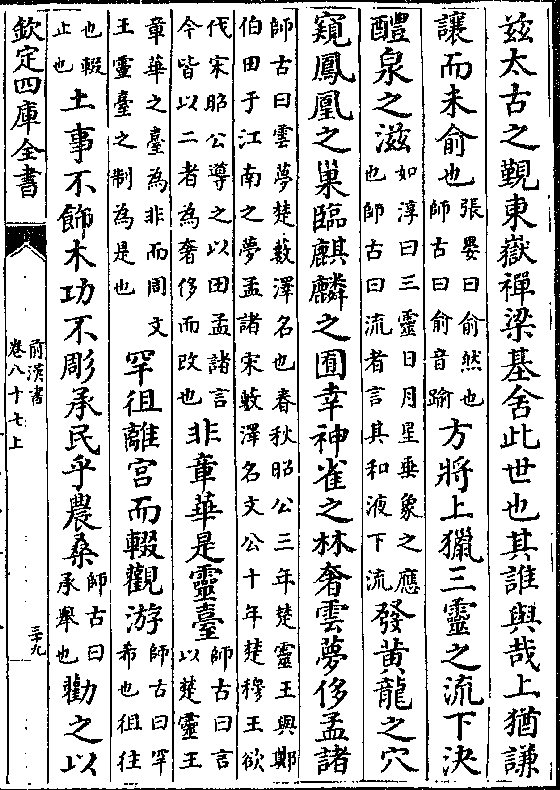 茲太古之覲東嶽禪梁基舍此世也其誰與哉上猶謙
讓而未俞也張晏曰俞然也師古曰俞音踰方將上獵三靈之流下決
醴泉之滋如淳曰三靈日月星垂象之應也師古曰流者言其和液下流發黄龍之穴
窺鳳凰之巢臨麒麟之囿幸神雀之林奢雲夢侈孟諸
師古曰雲夢楚藪澤名也春秋昭公三年楚靈王與鄭伯田于江南之夢孟諸宋藪澤名文公十年楚穆王欲
伐宋昭公導之以田孟諸言今皆以二者為奢侈而改也非章華是靈臺師古曰言以楚靈王
章華之臺為非而周文王靈臺之制為是也罕徂離宮而輟觀游師古曰罕希也徂往
也輟止也土事不飾木功不彫承民乎農桑師古曰承舉也勸之以
欽定四庫全書
前漢書
卷八十七上
三十九